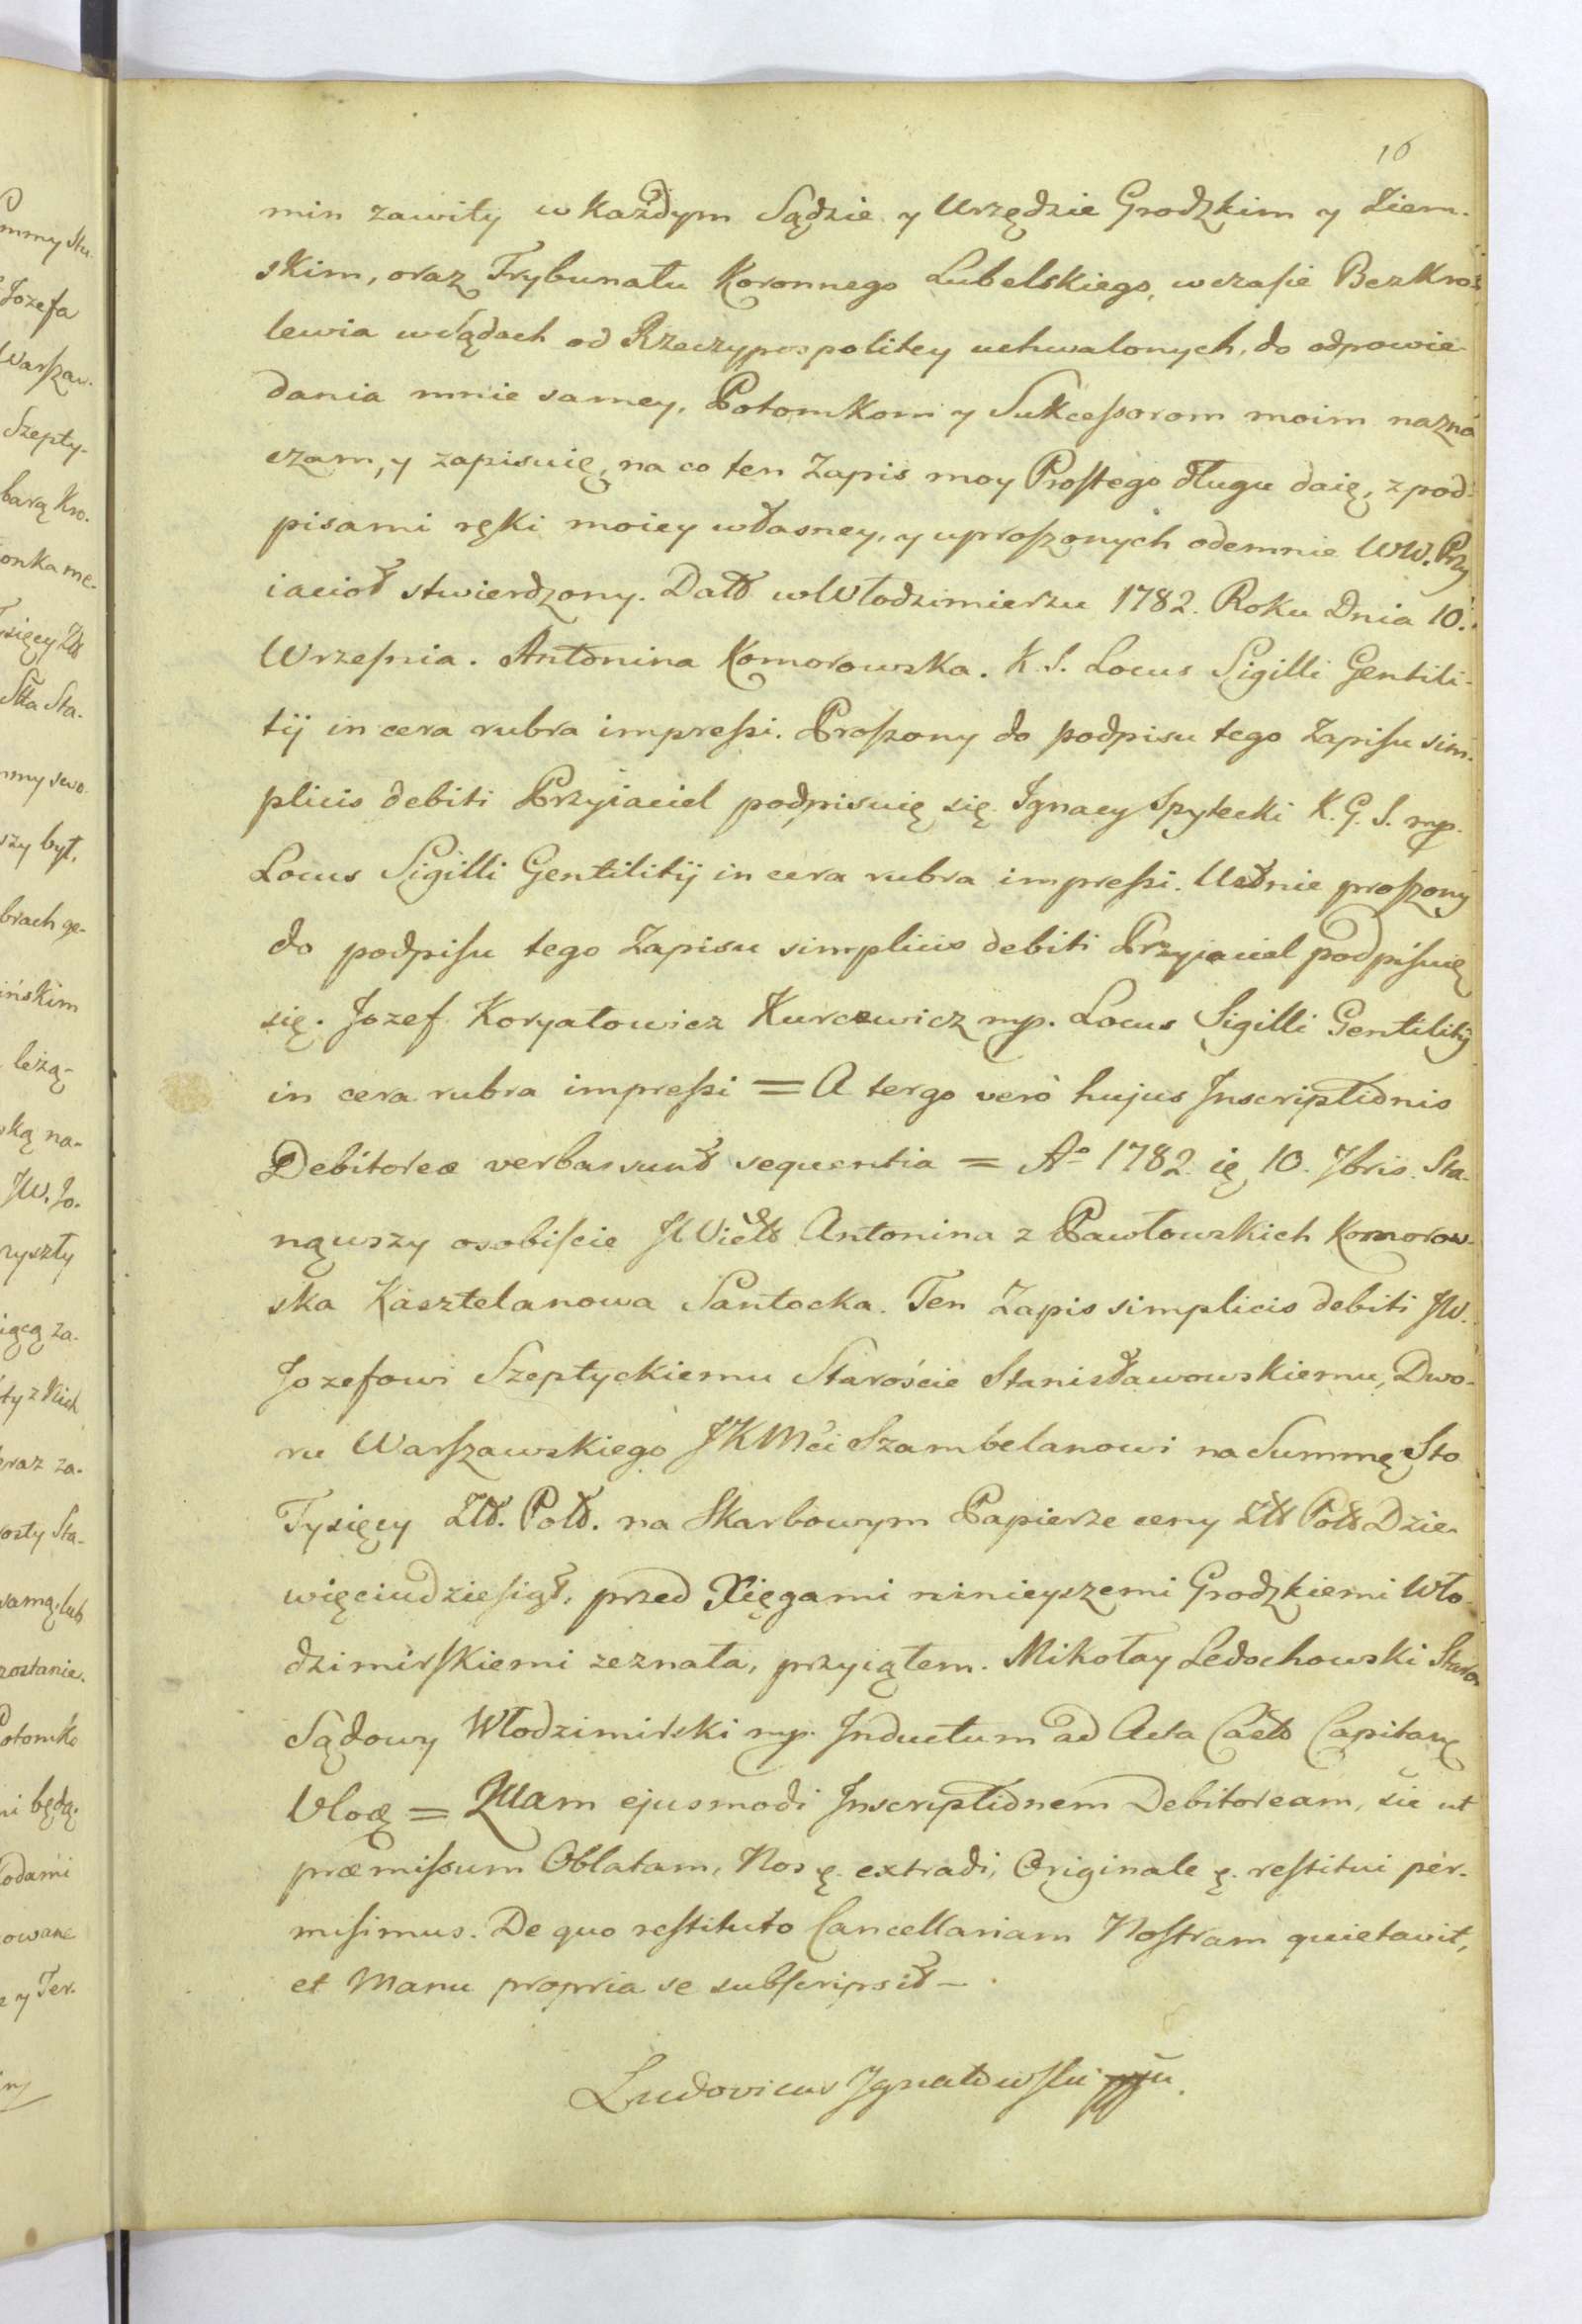 16
min zawity w każdym Sądzie y Urzędzie Grodzkim y Ziem-
skim, oraz Trybunału Koronnego Lubelskiego, w czasie Bezkro-
lewia w Sądach od Rzeczypospolitey uchwalonych, do odpowie-
dania mnie samey, Potomkom y Sukcessorom moim nazna
czam, y zapisuię, na co ten Zapis moy Prostego długu daię, z pod-
pisami ręki moiey własney, y uproszonych odemnie WW. Przy
iacioł stwierdzony. Datt w Włodzimierzu 1782. Roku Dnia 10.
Września. Antonina Komorowska. K. S. Locus Sigilli Gentili-
tij in cera rubra impressi. Proszony do podpisu tego Zapisu sim-
plicis debiti Przyiaciel podpisuię się Ignacy Spytecki K. G. S. mp.
Locus Sigilli Gentilitij in cera rubra impressi. Ustnie proszony
do podpisu tego Zapisu simplicis debiti Przyiaciel podpisuię
się. Jozef Koryatowicz Kurcewicz mp. Locus Sigilli Gentilitij
in cera rubra impressi = A tergo verò hujus Inscriptionis
Debitoreæ verba sunt sequentia = Aº 1782. ię 10. 7bris. Sta-
nąwszy osobiście JWielt Antonina z Pawłowskich Komorow-
ska Kasztelanowa Santocka. Ten Zapis simplicis debiti JW.
Jozefowi Szeptyckiemu Starościе Stanisławowskiemu, Dwo-
ru Warszawskiego JKMci Szambelanowi na Summę Sto
Tysięcy Złt. Polt. na Skarbowym Papierze ceny Złt Polt Dzie-
więciudziesiąt, przed Xięgami ninieyszemi Grodzkiemi Wło-
dzimirskiemi zeznała, przyiąłem. Mikołay Ledochowski Starta
Sądowy Włodzimirski mp. Inductum ad Acta Castr Capitanę
Vloę = Quam ejusmodi Inscriptionem Debitoream, sic ut
præmissum Oblatam, Nos ę. extradi, Originale ę. restitui per-
misimus. De quo restituto Cancellariam Nostram quietavit,
et Manu propria se subscripsit –
Ludovicus Ignatowski